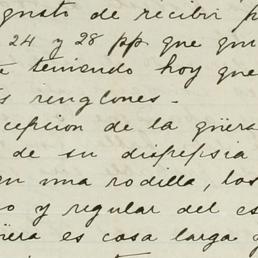 gusto de recibir
24 y 28 pp que
teniendo hoy que
renglones.-
cepcion de la güera
de su dispepsia
en una rodilla, los
o y regular del es
üera es cosa larga y